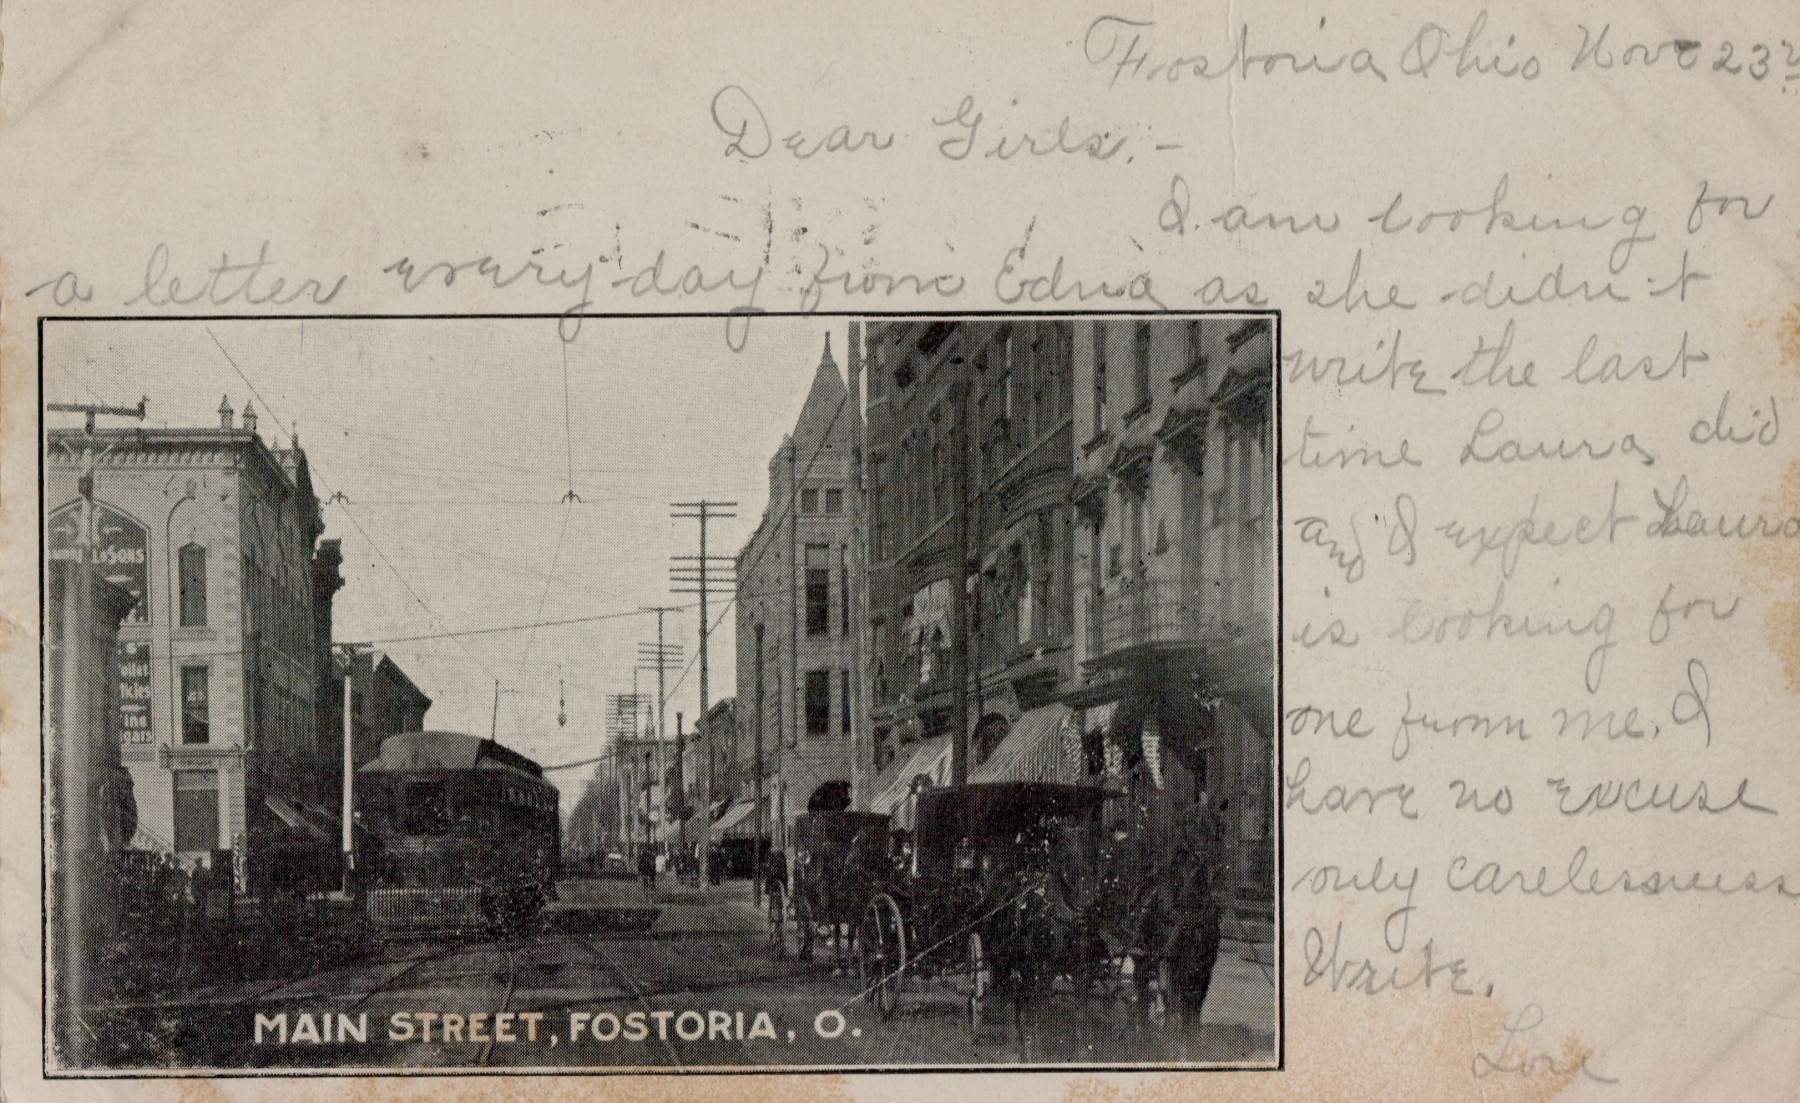 Fostoria Ohio Nov 23rd
Dear Girls.-
I am looking for
a letter every day from Edna as she didn't
write the last
time Laura did
and I expect Laura
is looking for
one from me. I
have no excuse
only carelessness
Write.
& SONS
MAIN STREET, FOSTORIA, O.